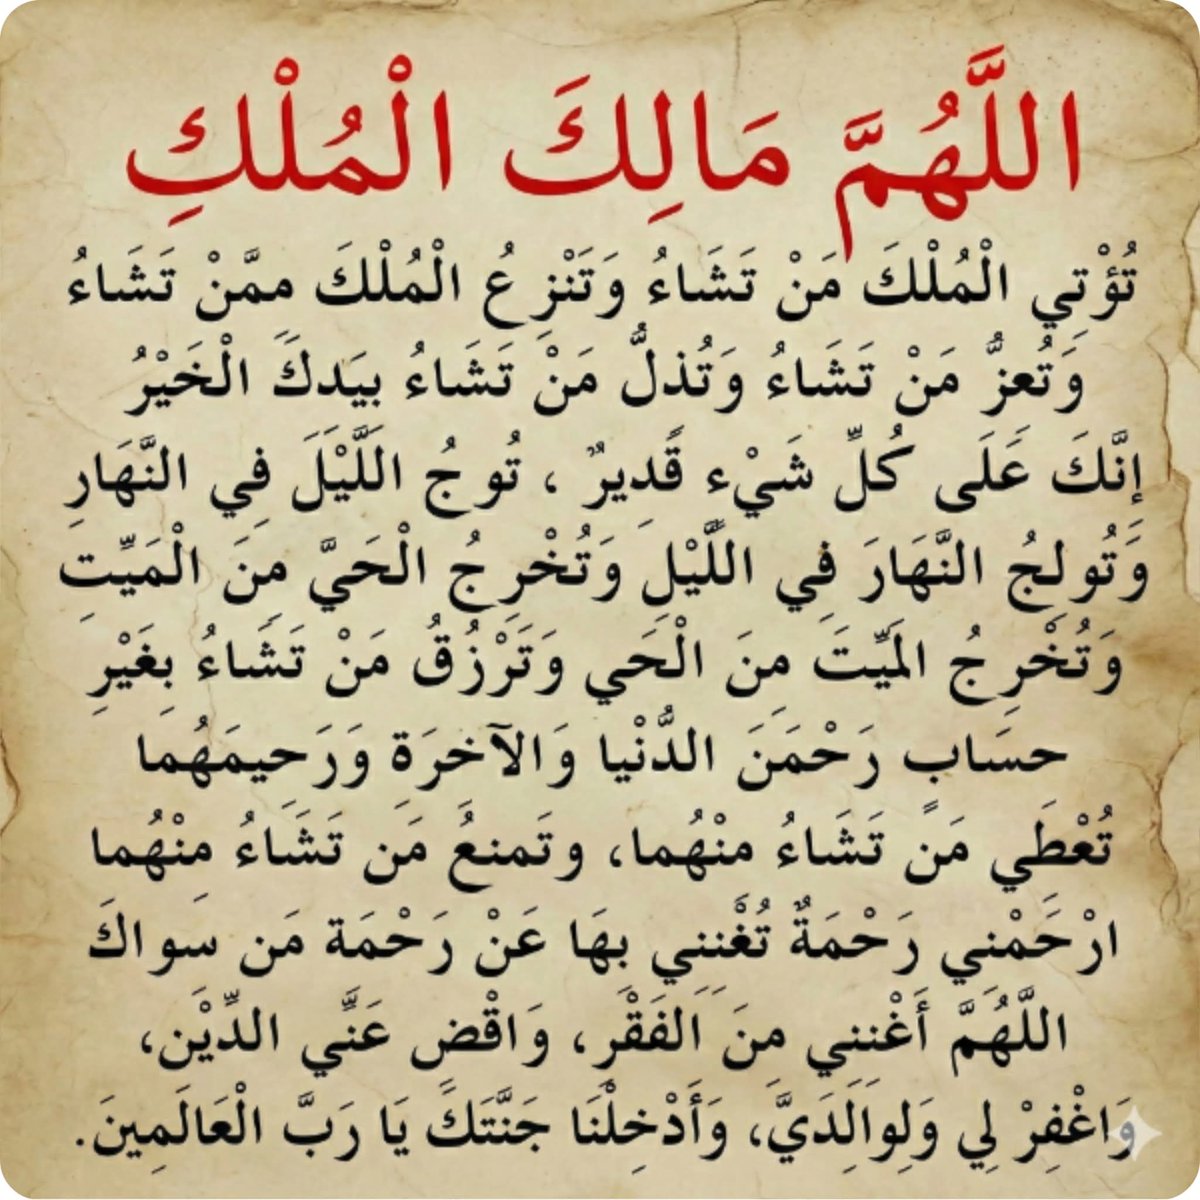 اللَّهُمَّ مَالِكَ الْمُلْكِ
تُؤْتِي الْمُلْكَ مَنْ تَشَاءُ وَتَنْزِعُ الْمُلْكَ ممَّنْ تَشَاءُ
وَتُعزُّ مَنْ تَشَاءُ وَتُذلُّ مَنْ تَشَاءُ بيَدكَ الْخَيْرُ
إنَّكَ عَلَى كُلِّ شَيْء قَديرٌ ، تُوجُ اللَّيْلَ فِي النَّهَارِ
وَتُولِجُ النَّهَارَ فِي اللَّيْلِ وَتُخْرِجُ الْحَيَّ مِنَ الْمَيِّتِ
وَتُخْرِجُ المَيِّتَ مِنَ الْحَي وَتَرْزُقُ مَنْ تَشَاءُ بِغَيْرِ
حسَاب رَحْمَنَ الدُّنْيا وَالآخرَة وَرَحيمَهُما
تُعْطَي مَن تَشَاءُ منْهُما، وتَمنعُ مَن تَشَاءُ منْهُما
ارْحَمْنِي رَحْمَةٌ تُغْنِنِي بِهَا عَنْ رَحْمَة مَن سوَاكَ
اللَّهُمَّ أَغْننِي منَ الفَقْرِ، وَاقْض عَنَّي الدِّيْن،
وَاغْفِرْ لِي وَلِوَالِدَيَّ، وَأَدْخِلْنَا جَنَّتَكَ يَا رَبَّ الْعَالَمِينَ.